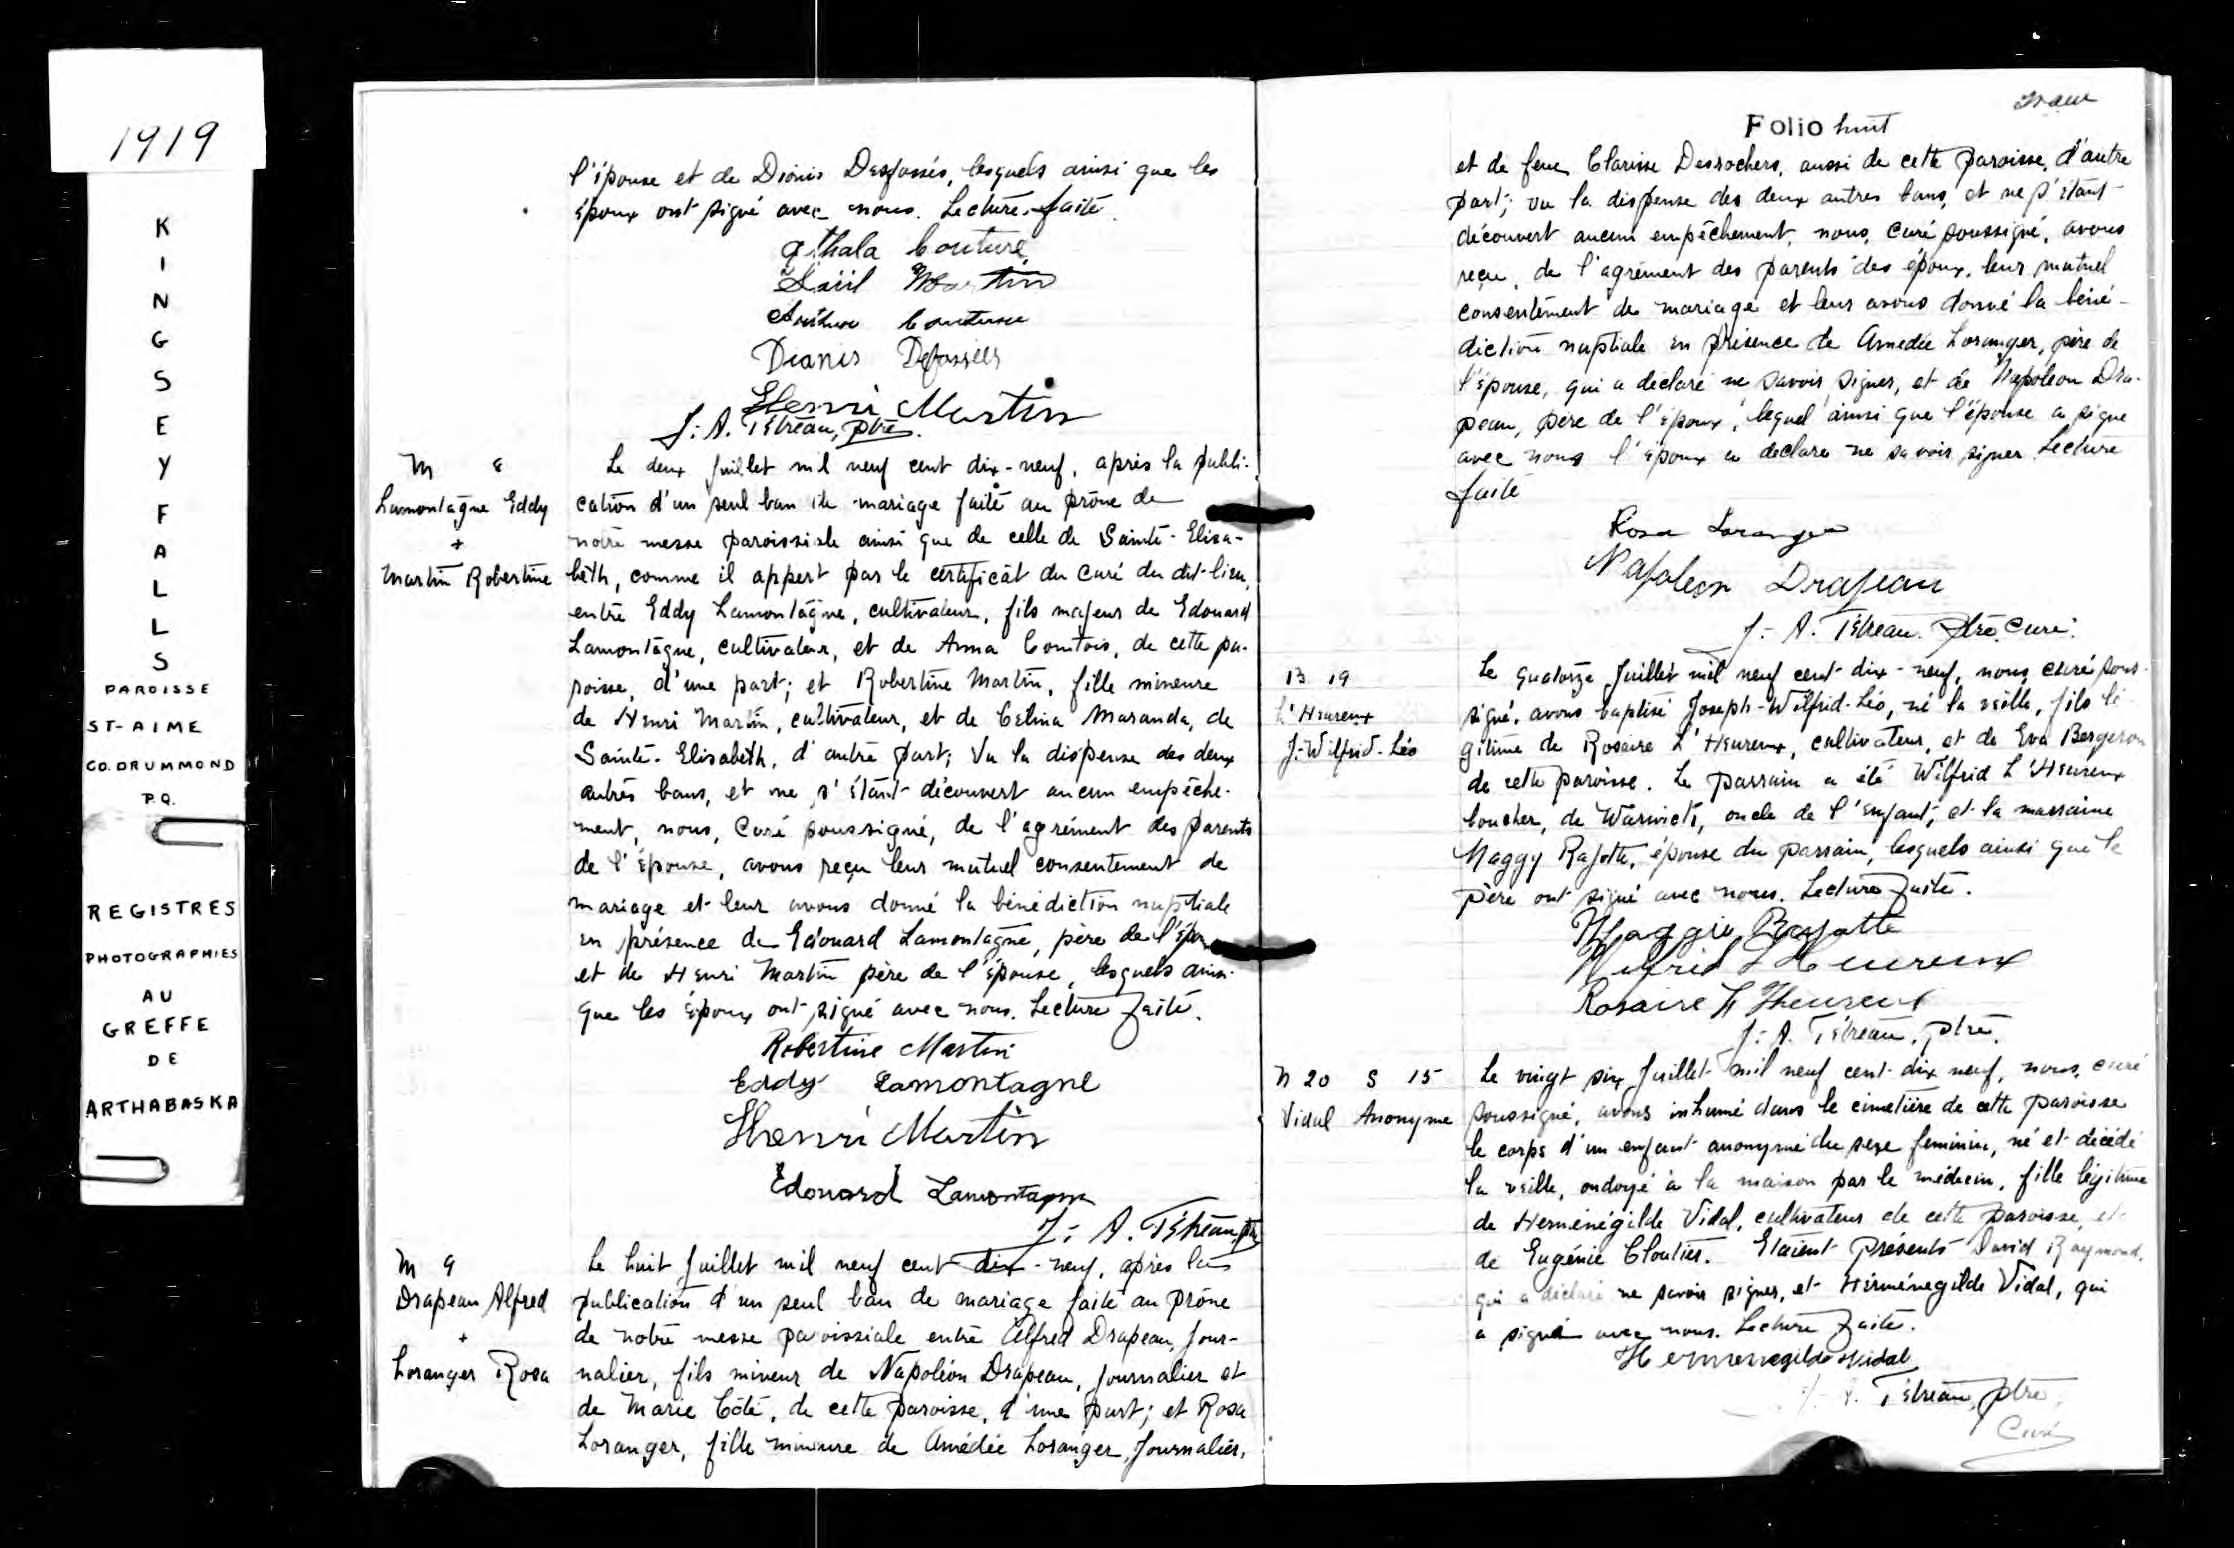 1919
KINGSEY FALLS
PAROISSE
ST-AIME
CO. DRUMMOND
P.Q.
REGISTRES
PHOTOGRAPHIES
AU
GREFFE
DE
ARTHABASKA
l'épouse et de Dionis Desfossés, lesquels ainsi que les
époux ont signé avec nous. Lecture faite.
Couture
Martin
Couture
Henri Martin
J.-A. Tétreau, ptre.
M 8
Lamontagne Eddy
+
Martin Robertine
Le deux Juillet mil neuf cent dix-neuf, après la publi-
cation d'un seul ban de mariage faite au prône de
notre messe paroissiale ainsi que de celle de Sainte-Elisa-
beth, comme il appert par le certificat du curé du dit-lieu,
entre Eddy Lamontagne, cultivateur, fils majeur de Edouard
Lamontagne, cultivateur, et de Anna Comtois, de cette pa-
roisse, d'une part; et Robertine Martin, fille mineure
de Henri Martin, cultivateur, et de Celina Maranda, de
Sainte-Elisabeth, d'autre part; Vu la dispense des deux
autres bans, et ne s'étant découvert aucun empêche-
ment, nous, Curé soussigné, de l'agrément des parents
de l'épouse, avons reçu leur mutuel consentement de
mariage et leur avons donné la bénédiction nuptiale
en présence de Edouard Lamontagne, père de l'épou
et de Henri Martin père de l'épouse, lesquels ainsi
que les époux ont signé avec nous. Lecture faite.
Robertine Martin
Eddy Lamontagne
Henri Martin
Edouard Lamontagne
J.-A. Tétreau, ptre
M 9
Drapeau Alfred
+
Loranger Rosa
Le huit Juillet mil neuf cent dix-neuf, après la
publication d'un seul ban de mariage faite au prône
de notre messe paroissiale entre Alfred Drapeau, jour-
nalier, fils mineur de Napoléon Drapeau, journalier et
de Marie Côté, de cette paroisse, d'une part; et Rosa
Loranger, fille mineure de Amédée Loranger, journalier,
Folio huit
et de feue Clarisse Desrochers, aussi de cette paroisse, d'autre
part; vu la dispense des deux autres bans, et ne s'étant
découvert aucun empêchement, nous, curé soussigné, avons
reçu, de l'agrément des parents des époux, leur mutuel
consentement de mariage et leur avons donné la béné-
diction nuptiale en présence de Amédée Loranger, père de
l'épouse, qui a déclaré ne savoir signer, et de Napoléon Dra-
peau, père de l'époux, lequel ainsi que l'épouse a signé
avec nous l'époux a déclaré ne savoir signer. Lecture
faite
Rosa Loranger
Napoleon Drapeau
J.-A. Tétreau. Ptre. curé.
B 19
L'Heureux
J.-Wilfrid-Léo
Le quatorze Juillet mil neuf cent dix-neuf, nous, curé sous-
signé, avons baptisé Joseph-Wilfrid-Léo, né la veille, fils lé-
gitime de Rosaire L'Heureux, cultivateur, et de Eva Bergeron
de cette paroisse. Le parrain a été Wilfrid L'Heureux
boucher, de Warwick, oncle de l'enfant, et la marraine
Maggy Rajotte, épouse du parrain, lesquels ainsi que le
père ont signé avec nous. Lecture faite.
Maggie Rajotte
Wilfrid L'Heureux
Rosaire L'Heureux
J.-A. Tétreau, ptre.
N 20 S 15
Vidal Anonyme
Le vingt six Juillet mil neuf cent dix neuf, nous, curé
soussigné, avons inhumé dans le cimetière de cette paroisse
le corps d'un enfant anonyme du sexe féminin, né et décédé
la veille, ondoyé à la maison par le médecin, fille légitime
de Herménégilde Vidal, cultivateur de cette paroisse, et
de Eugénie Cloutier. Etaient présents David Raymond,
qui a déclaré ne savoir signer, et Herménégilde Vidal, qui
a signé avec nous. Lecture faite.
Hermenegilde Vidal
J.-A. Tétreau, ptre,
Curé